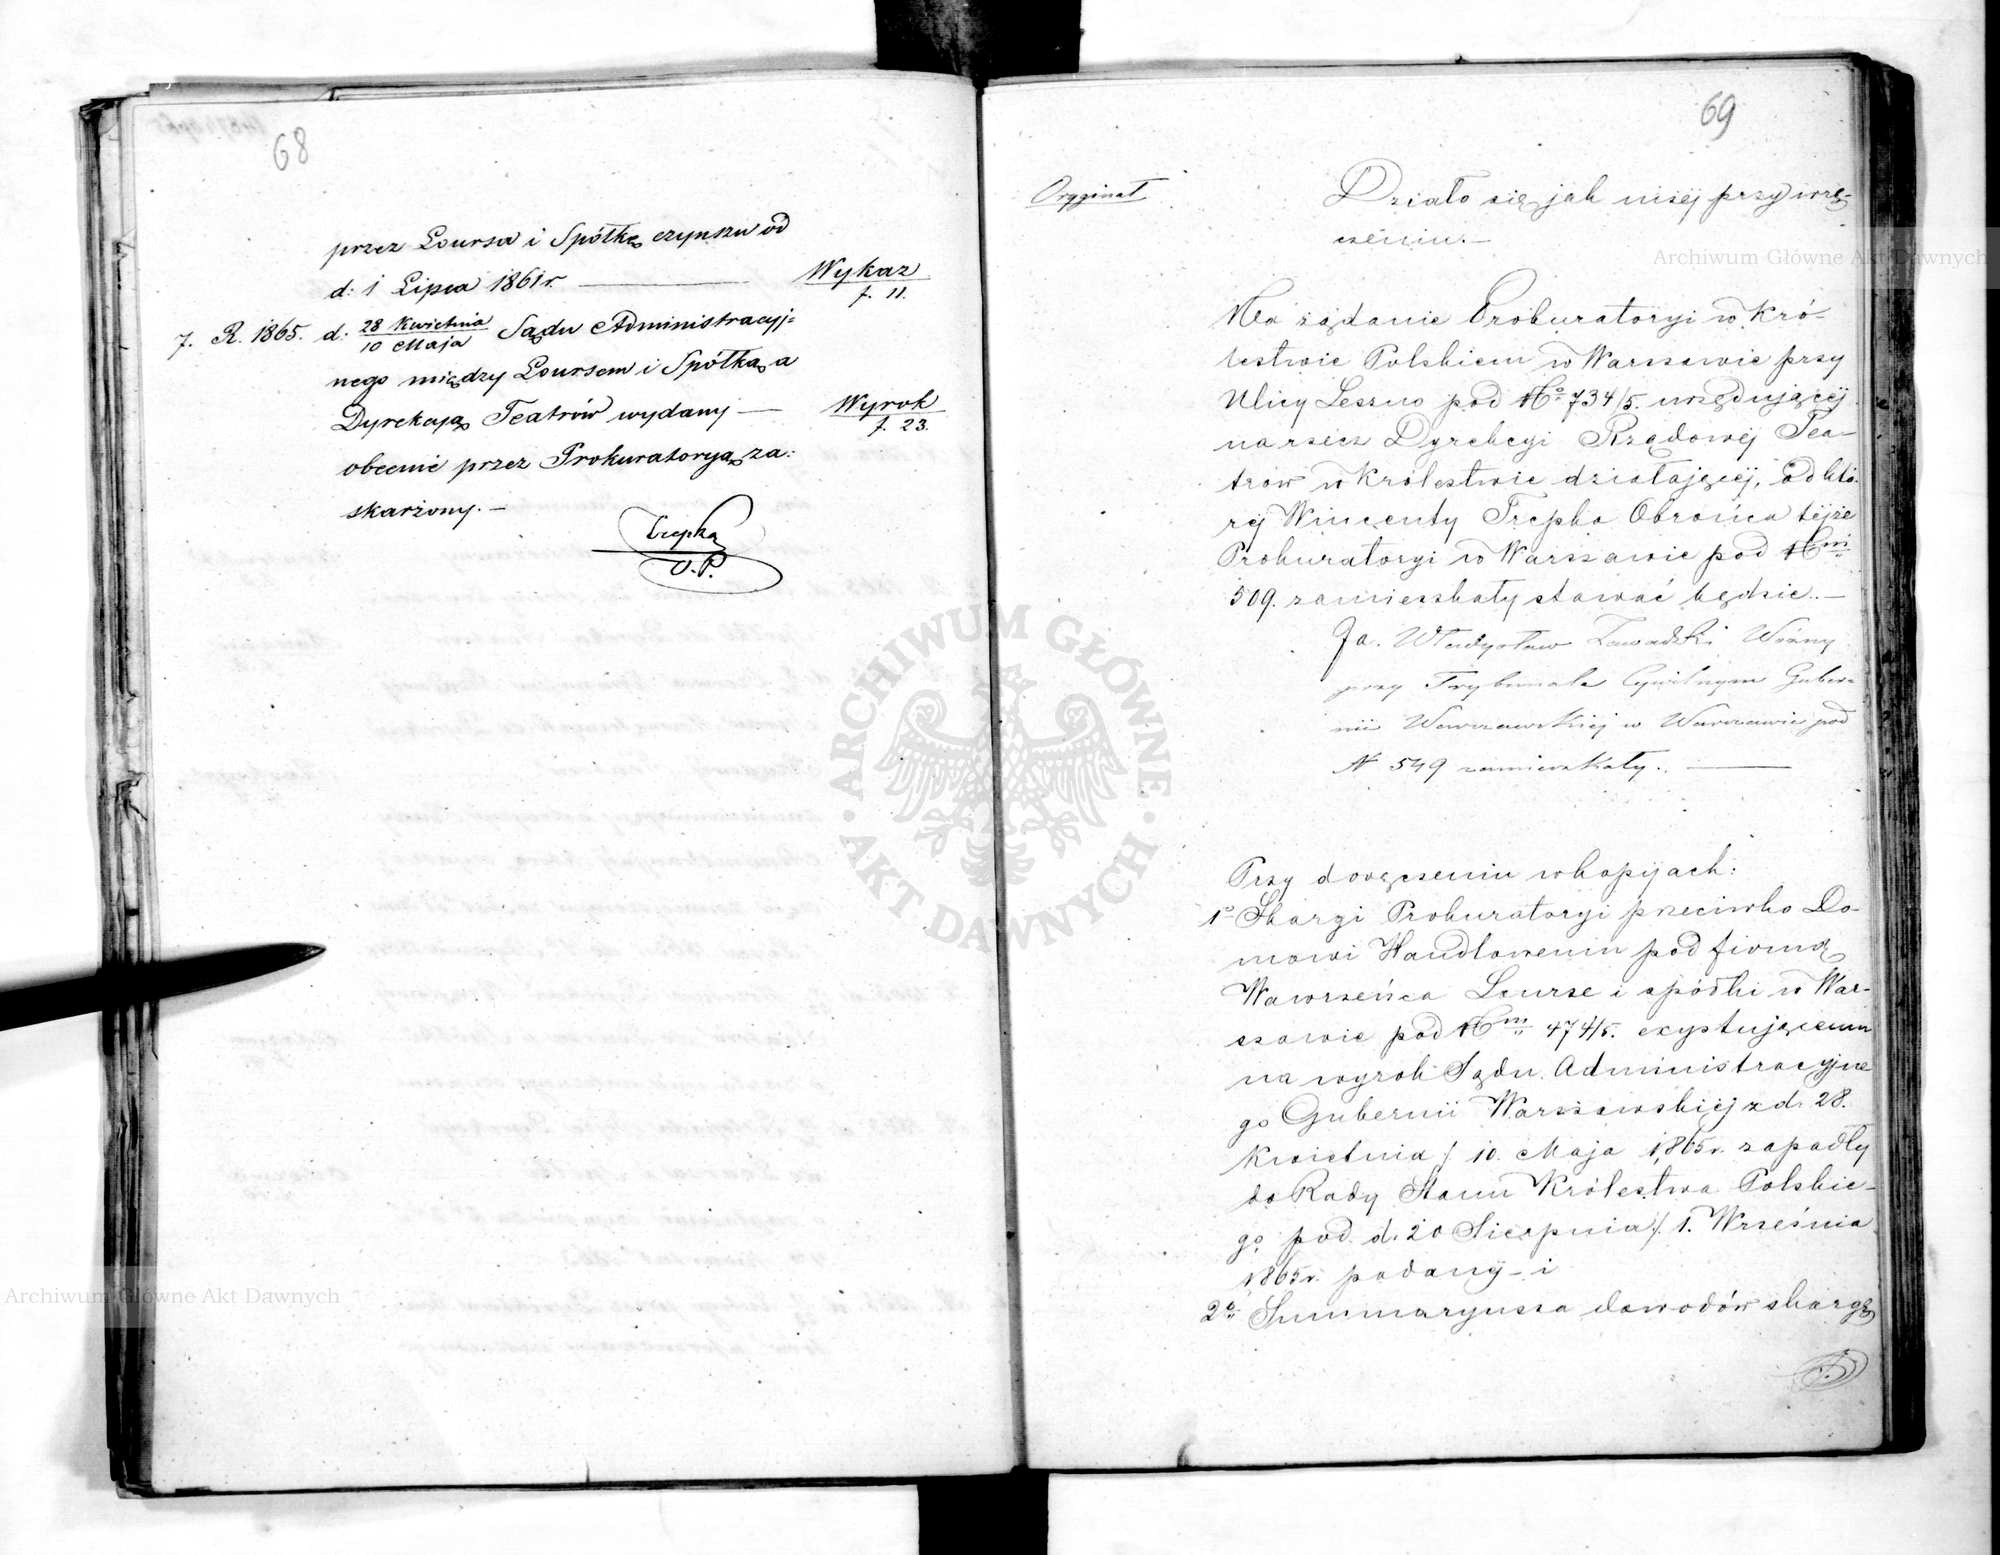 68
przez Loursa i Spółkę czynszu od
d: 1 Lipca 1861 r. —
Wykaz
f. 11.
7. R. 1865. d: 28 Kwietnia / 10 Maja Sądu Administracyj=
nego między Loursem i Spółką a
Dyrekcją Teatrów wydany —
Wyrok
f. 23.
obecnie przez Prokuratoryą za:
skarżony. —
Trepka
O. P.
69
Oryginał
Działo się jak niżej przy wrę-
czeniu. —
Na żądanie Prokuratoryi w Kró-
lestwie Polskiem w Warszawie przy
Ulicy Leszno pod No 734/5. urzędującej
narzecz Dyrekcyi Rządowéj Tea-
trów w Królestwie działającéj, od któ-
réj Wincenty Trepka Obrońca téjże
Prokuratoryi w Warszawie pod Nm
509. zamieszkały stawać będzie. —
Ja. Władysław Zawadzki Woźny
przy Trybunale Cywilnym Guber-
nii Warszawskiej w Warszawie pod
N 549 zamieszkały. —
Przy doręczeniu w kopijach:
1o Skargi Prokuratoryi przeciwko Do-
mowi Handlowemu pod firmą
Wawrzeńca Lourse i spółki w War-
szawie pod Nm 474/5. exystującemu
na wyrok Sądu Administracyjne
go Gubernii Warszawskiéj z d. 28.
Kwietnia / 10. Maja 1865 r. zapadły
do Rady Stanu Królestwa Polskie-
go pod d. 20 Sierpnia / 1. Września
1865 r. podanéj — i
2o Summaryusza dowodów skargę
ARCHIWUM GŁÓWNE AKT DAWNYCH
Archiwum Główne Akt Dawnych
Archiwum Główne Akt Dawnych